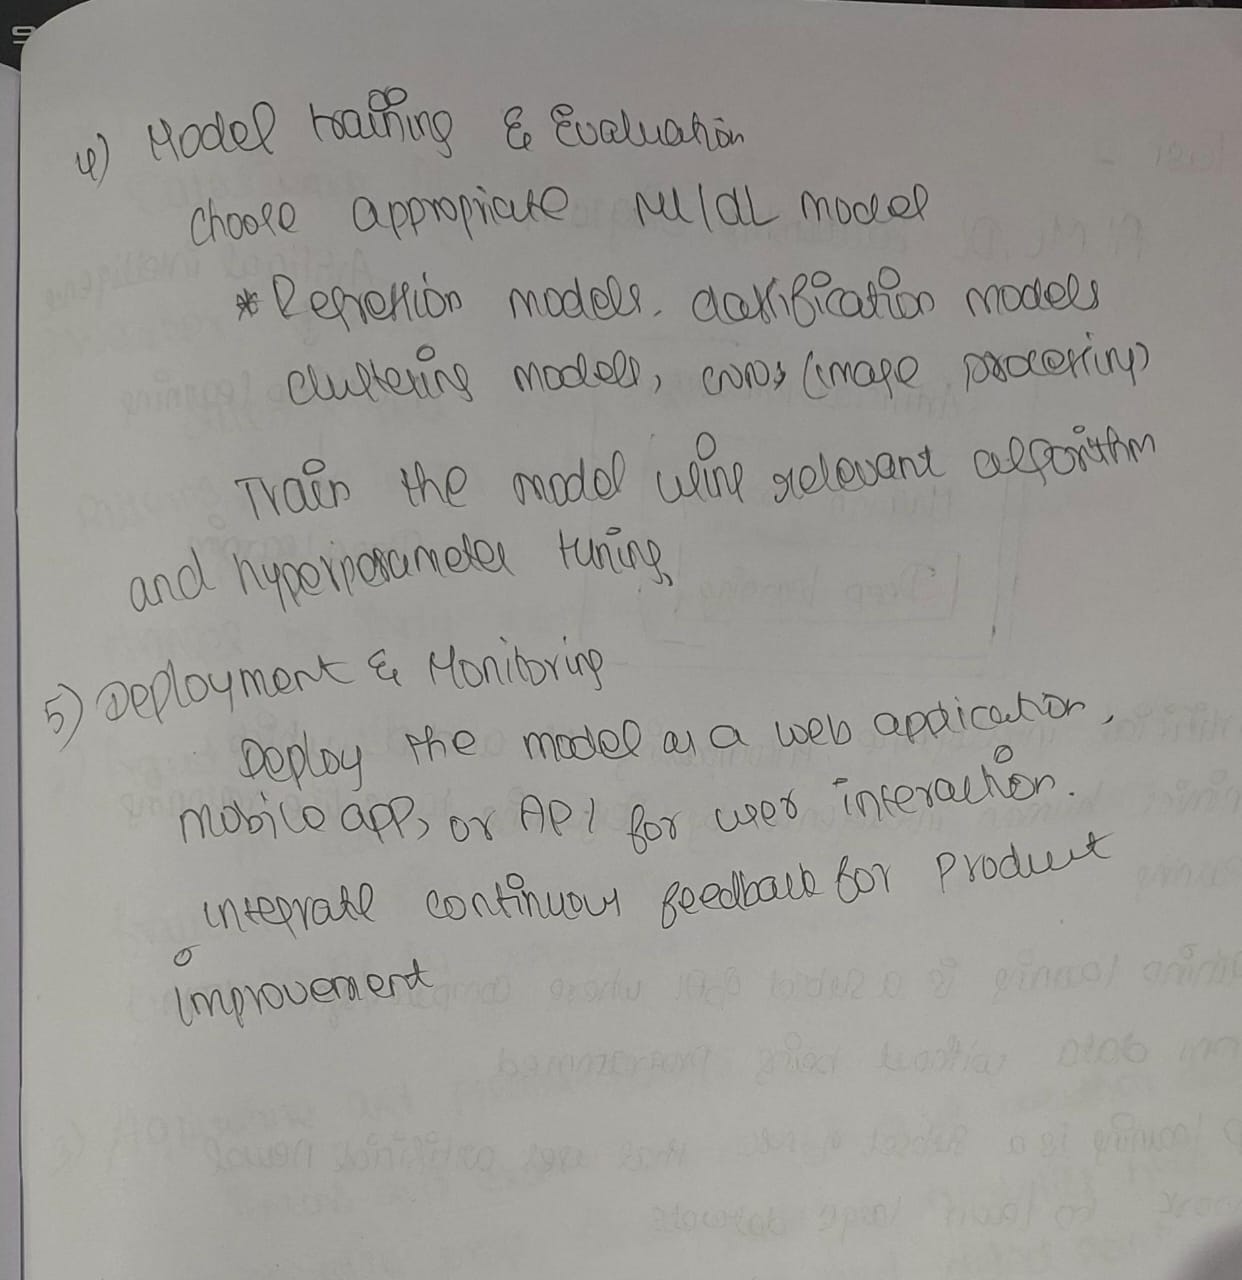 4) Model training & Evaluation
choose appropriate ML/dL model
* Regression models, classification models
clustering models, CNNs (image processing)
Train the model using relevant algorithm
and hyperparameter tuning,
5) Deployment & Monitoring
Deploy the model as a web application,
mobile app, or API for user interaction.
integrate continuous feedback for product
improvement